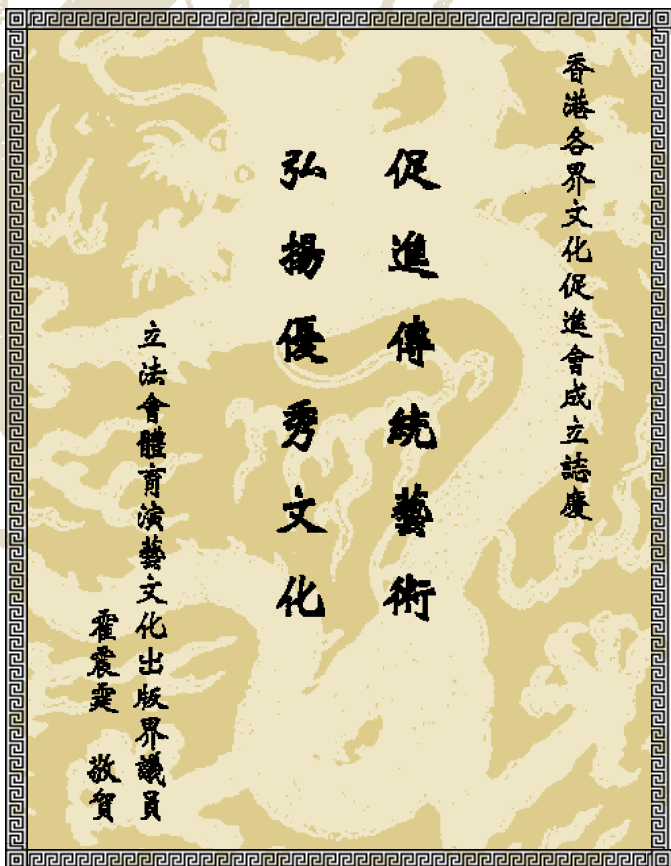 香港各界文化促進會成立誌慶
促進傳統藝術
弘揚優秀文化
立法會體育演藝文化出版界議員
霍震霆 敬賀